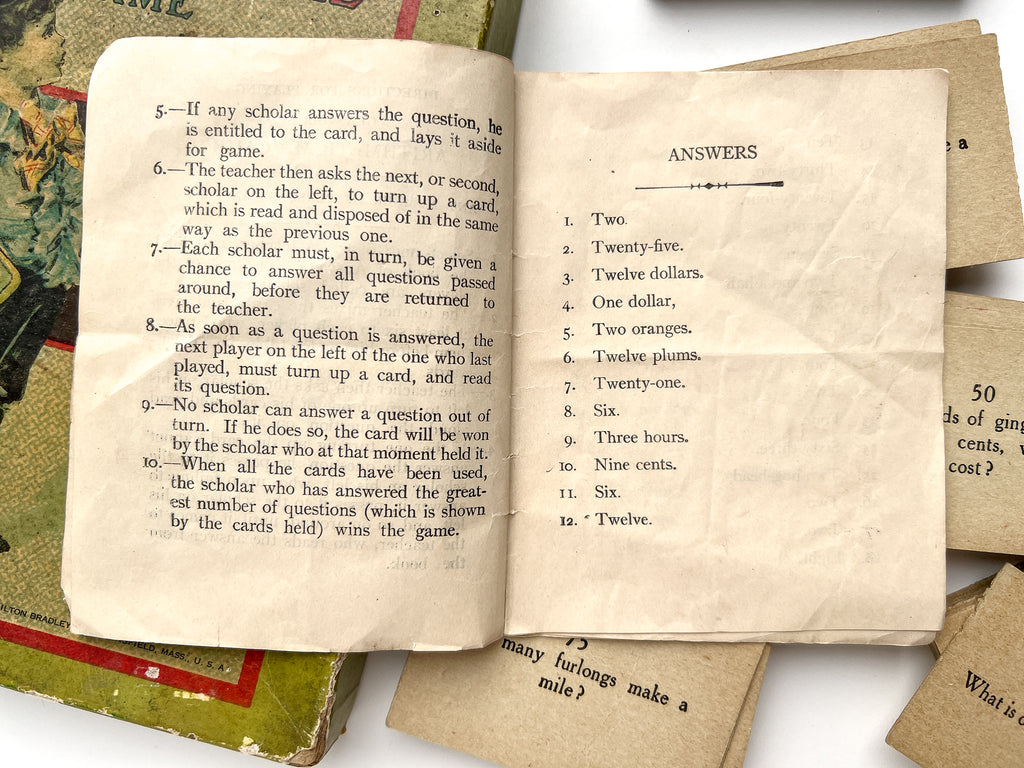 5.—If any scholar answers the question, he
is entitled to the card, and lays it aside
for game.
6.—The teacher then asks the next, or second,
scholar on the left, to turn up a card,
which is read and disposed of in the same
way as the previous one.
7.—Each scholar must, in turn, be given a
chance to answer all questions passed
around, before they are returned to
the teacher.
8.—As soon as a question is answered, the
next player on the left of the one who last
played, must turn up a card, and read
its question.
9.—No scholar can answer a question out of
turn. If he does so, the card will be won
by the scholar who at that moment held it.
10.—When all the cards have been used,
the scholar who has answered the great-
est number of questions (which is shown
by the cards held) wins the game.
ANSWERS
1. Two.
2. Twenty-five.
3. Twelve dollars.
4. One dollar,
5. Two oranges.
6. Twelve plums.
7. Twenty-one.
8. Six.
9. Three hours.
10. Nine cents.
11. Six.
12. Twelve.
a
50
of
cents,
cost?
75
many furlongs make a
mile?
What is
BRADLEY
MASS., U. S. A.